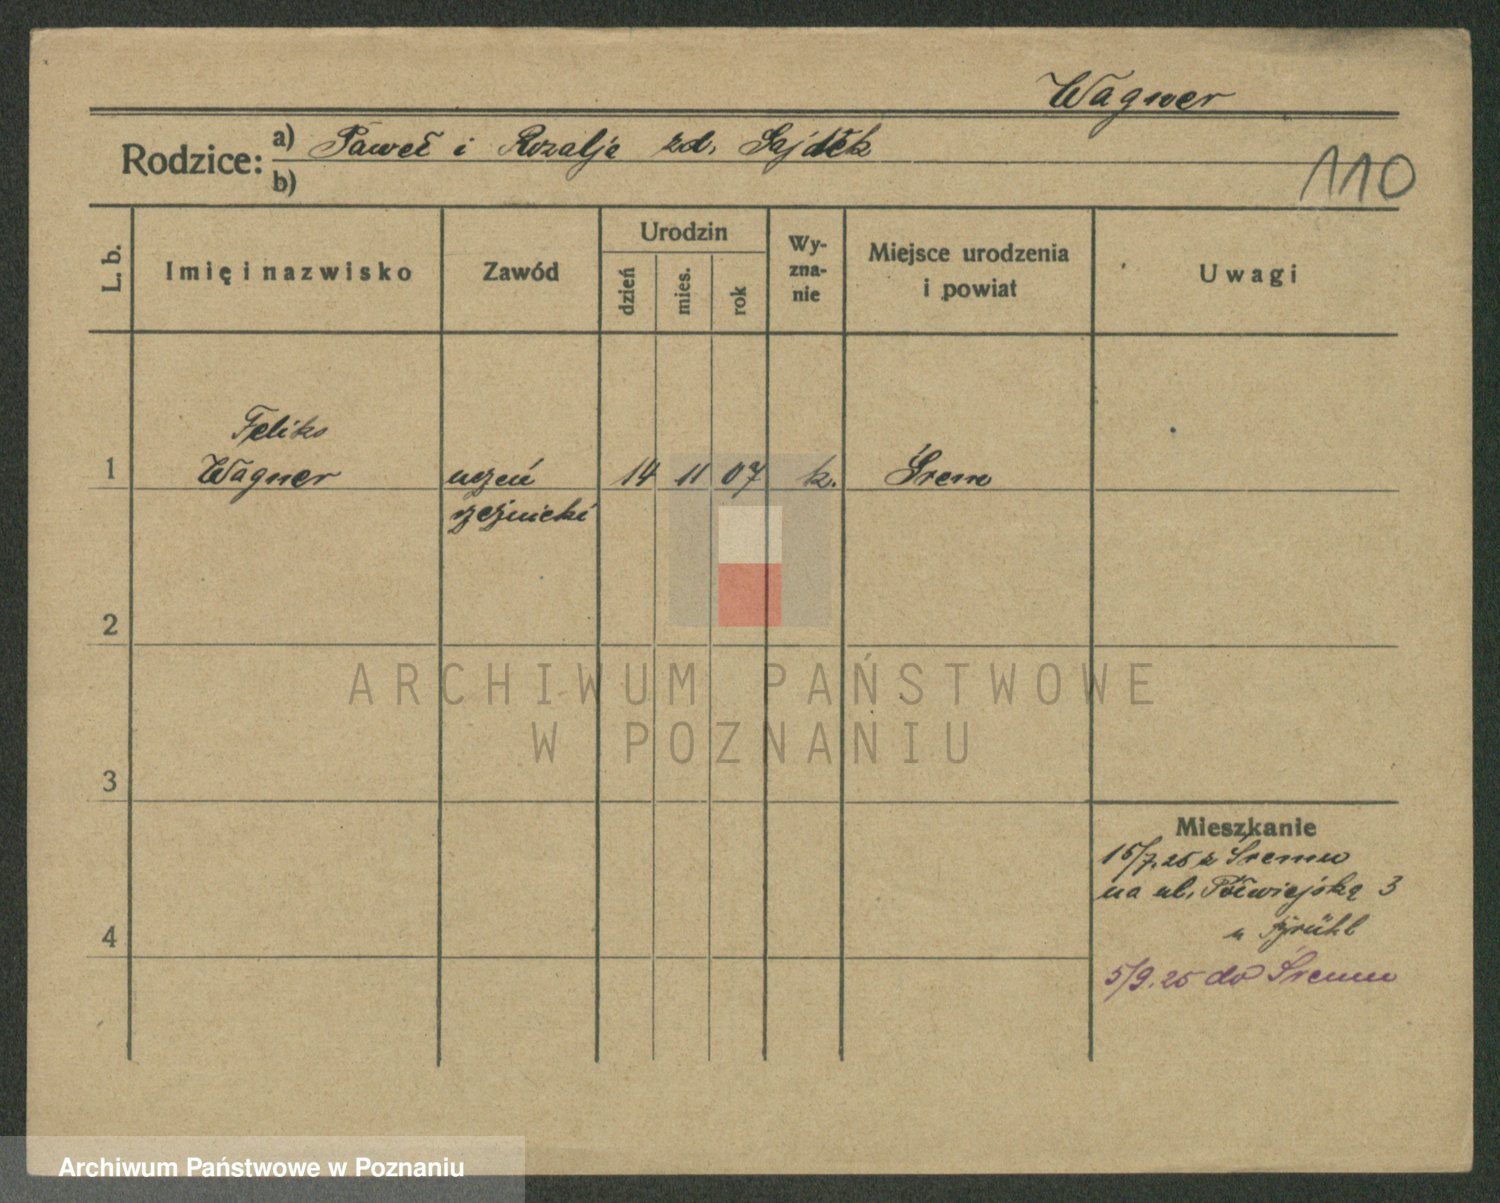 Wagner
Rodzice: a) Paweł i Rozalja zd. Sajdek
b)
110
L. b.
Imię i nazwisko
Zawód
Urodzin
dzień
mies.
rok
Wy-
zna-
nie
Miejsce urodzenia
i powiat
Uwagi
Feliks
1 Wagner uczeń 14 11 07 k. Śrem
rzeźnicki
2
ARCHIWUM PAŃSTWOWE
W POZNANIU
3
Mieszkanie
15/7.25 z Śremu
na ul. Półwiejską 3
u Brühl
4
5/9.25 do Śremu
Archiwum Państwowe w Poznaniu